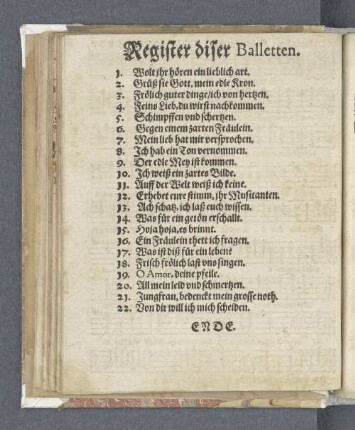 Register diser Balletten.
1. Wolt jhr hören ein lieblich art.
2. Grüß sie Gott, mein edle Kron.
3. Frölich guter dinge, ich von hertzen.
4. Feins Lieb, du wirst nachkommen.
5. Schimpffen vnd schertzen.
6. Gegen einem zarten Fräulein.
7. Mein lieb hat mir versprochen.
8. Ich hab ein Ton vernommen.
9. Der edle Mey ist kommen.
10. Ich weiß ein zartes Bilde.
11. Auff der Welt weiß ich keine.
12. Erhebet eure stimm, jhr Musicanten.
13. Ach schatz, ich laß euch wissen.
14. Was für ein getön erschallt.
15. Hoja hoja, es brinnt.
16. Ein Fräulein thett ich fragen.
17. Was ist diß für ein leben?
18. Frisch frölich last vns singen.
19. O Amor, deine pfeile.
20. All mein leid vnd schmertzen.
21. Jungfrau, bedenckt mein grosse noth.
22. Von dir will ich mich scheiden.
ENDE.